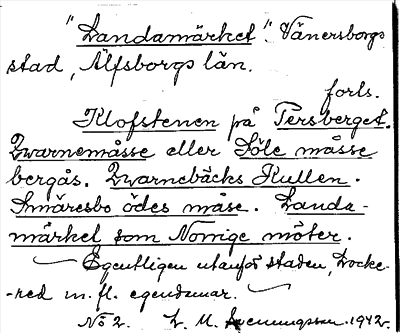 "Landamärket". Vänersborgs
stad, Älfsborgs län.
forts.
Klofstenen på Tersberget.
Qvarnemåsse eller Söle måsse
bergås. Qvarnebäcks Kullen.
Smäresbo ödes måse. Landa-
märket som Norrige möter.
Egentligen utanför staden, Locke-
-red m. fl. egendomar.
No 2. L. M. Svenungsson. 1942.